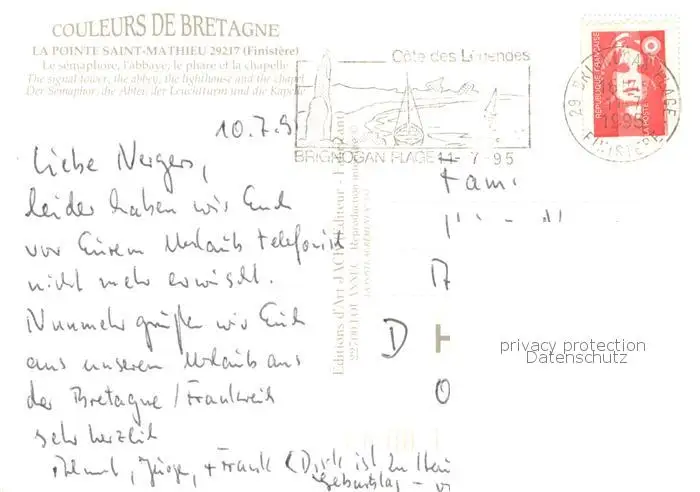 COULEURS DE BRETAGNE
LA POINTE SAINT-MATHIEU 29217 (Finistère)
Le sémaphore, l'abbaye, le phare et la chapelle
The signal tower, the abbey, the lighthouse and the chapel
Der Semaphor, die Abtei, der Leuchtturm und die Kapelle
Côte des Légendes
BRIGNOGAN PLAGE 11-7-95
RÉPUBLIQUE FRANÇAISE
LA POSTE
29 BRIGNOGAN PLAGE
1995
FINISTERE
10.7.9
Liebe Nergers,
leider haben wir Euch
vor Eurem Urlaub telefonisch
nicht mehr erwischt.
Nunmehr grüßen wir Euch
aus unserem Urlaub aus
der Bretagne / Frankreich
sehr herzlich
Helmut, Jürgen, + Frank (Dirk ist zu Hau
Geburtstag
Editions d'Art JACK
Reproduction interdite
Fam
D
privacy protection
Datenschutz